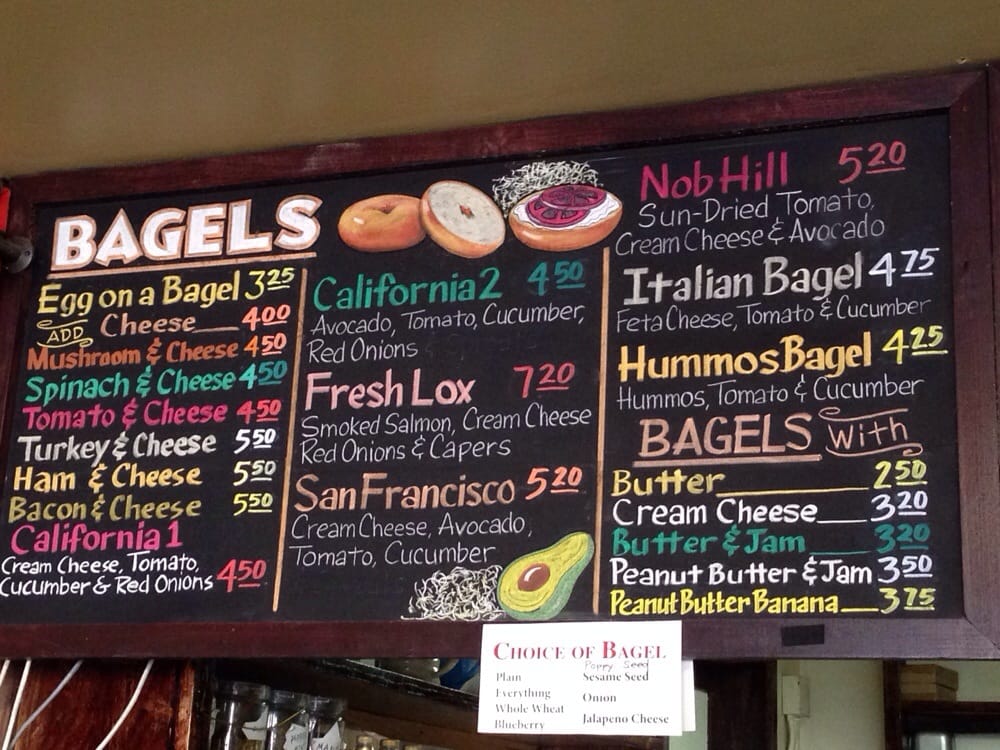 BAGELS
Egg on a Bagel 3.25
ADD Cheese 4.00
Mushroom & Cheese 4.50
Spinach & Cheese 4.50
Tomato & Cheese 4.50
Turkey & Cheese 5.50
Ham & Cheese 5.50
Bacon & Cheese 5.50
California 1
Cream Cheese, Tomato,
Cucumber & Red Onions 4.50
California 2 4.50
Avocado, Tomato, Cucumber,
Red Onions
Fresh Lox 7.20
Smoked Salmon, Cream Cheese
Red Onions & Capers
San Francisco 5.20
Cream Cheese, Avocado,
Tomato, Cucumber
Nob Hill 5.20
Sun-Dried Tomato,
Cream Cheese & Avocado
Italian Bagel 4.75
Feta Cheese, Tomato & Cucumber
Hummos Bagel 4.25
Hummos, Tomato & Cucumber
BAGELS with
Butter 2.50
Cream Cheese 3.20
Butter & Jam 3.20
Peanut Butter & Jam 3.50
Peanut Butter Banana 3.75
CHOICE OF BAGEL
Plain
Everything
Whole Wheat
Blueberry
Poppy Seed
Sesame Seed
Onion
Jalapeno Cheese